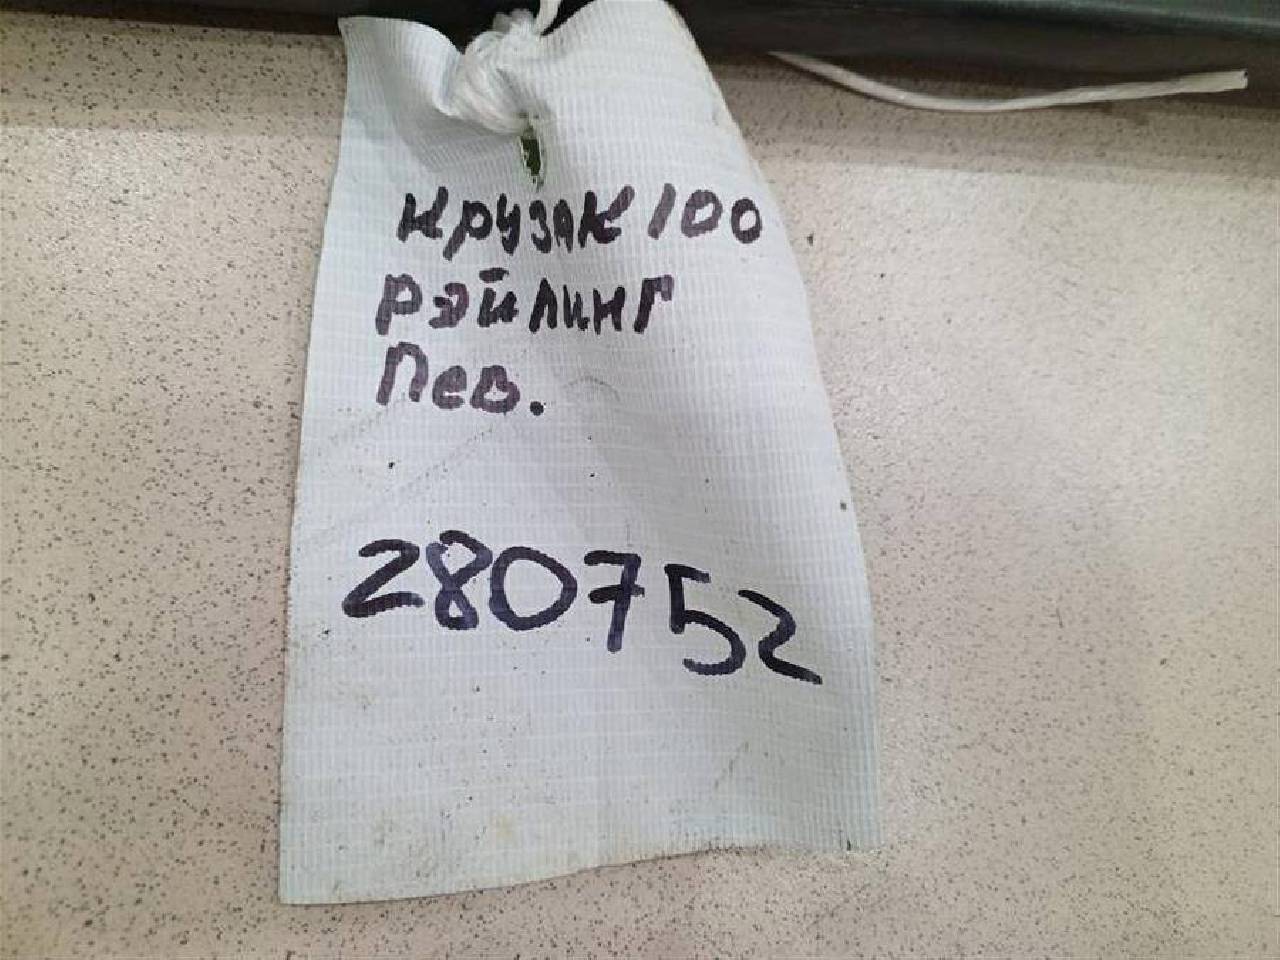 Крузак 100
Рэйлинг
Лев.
280752